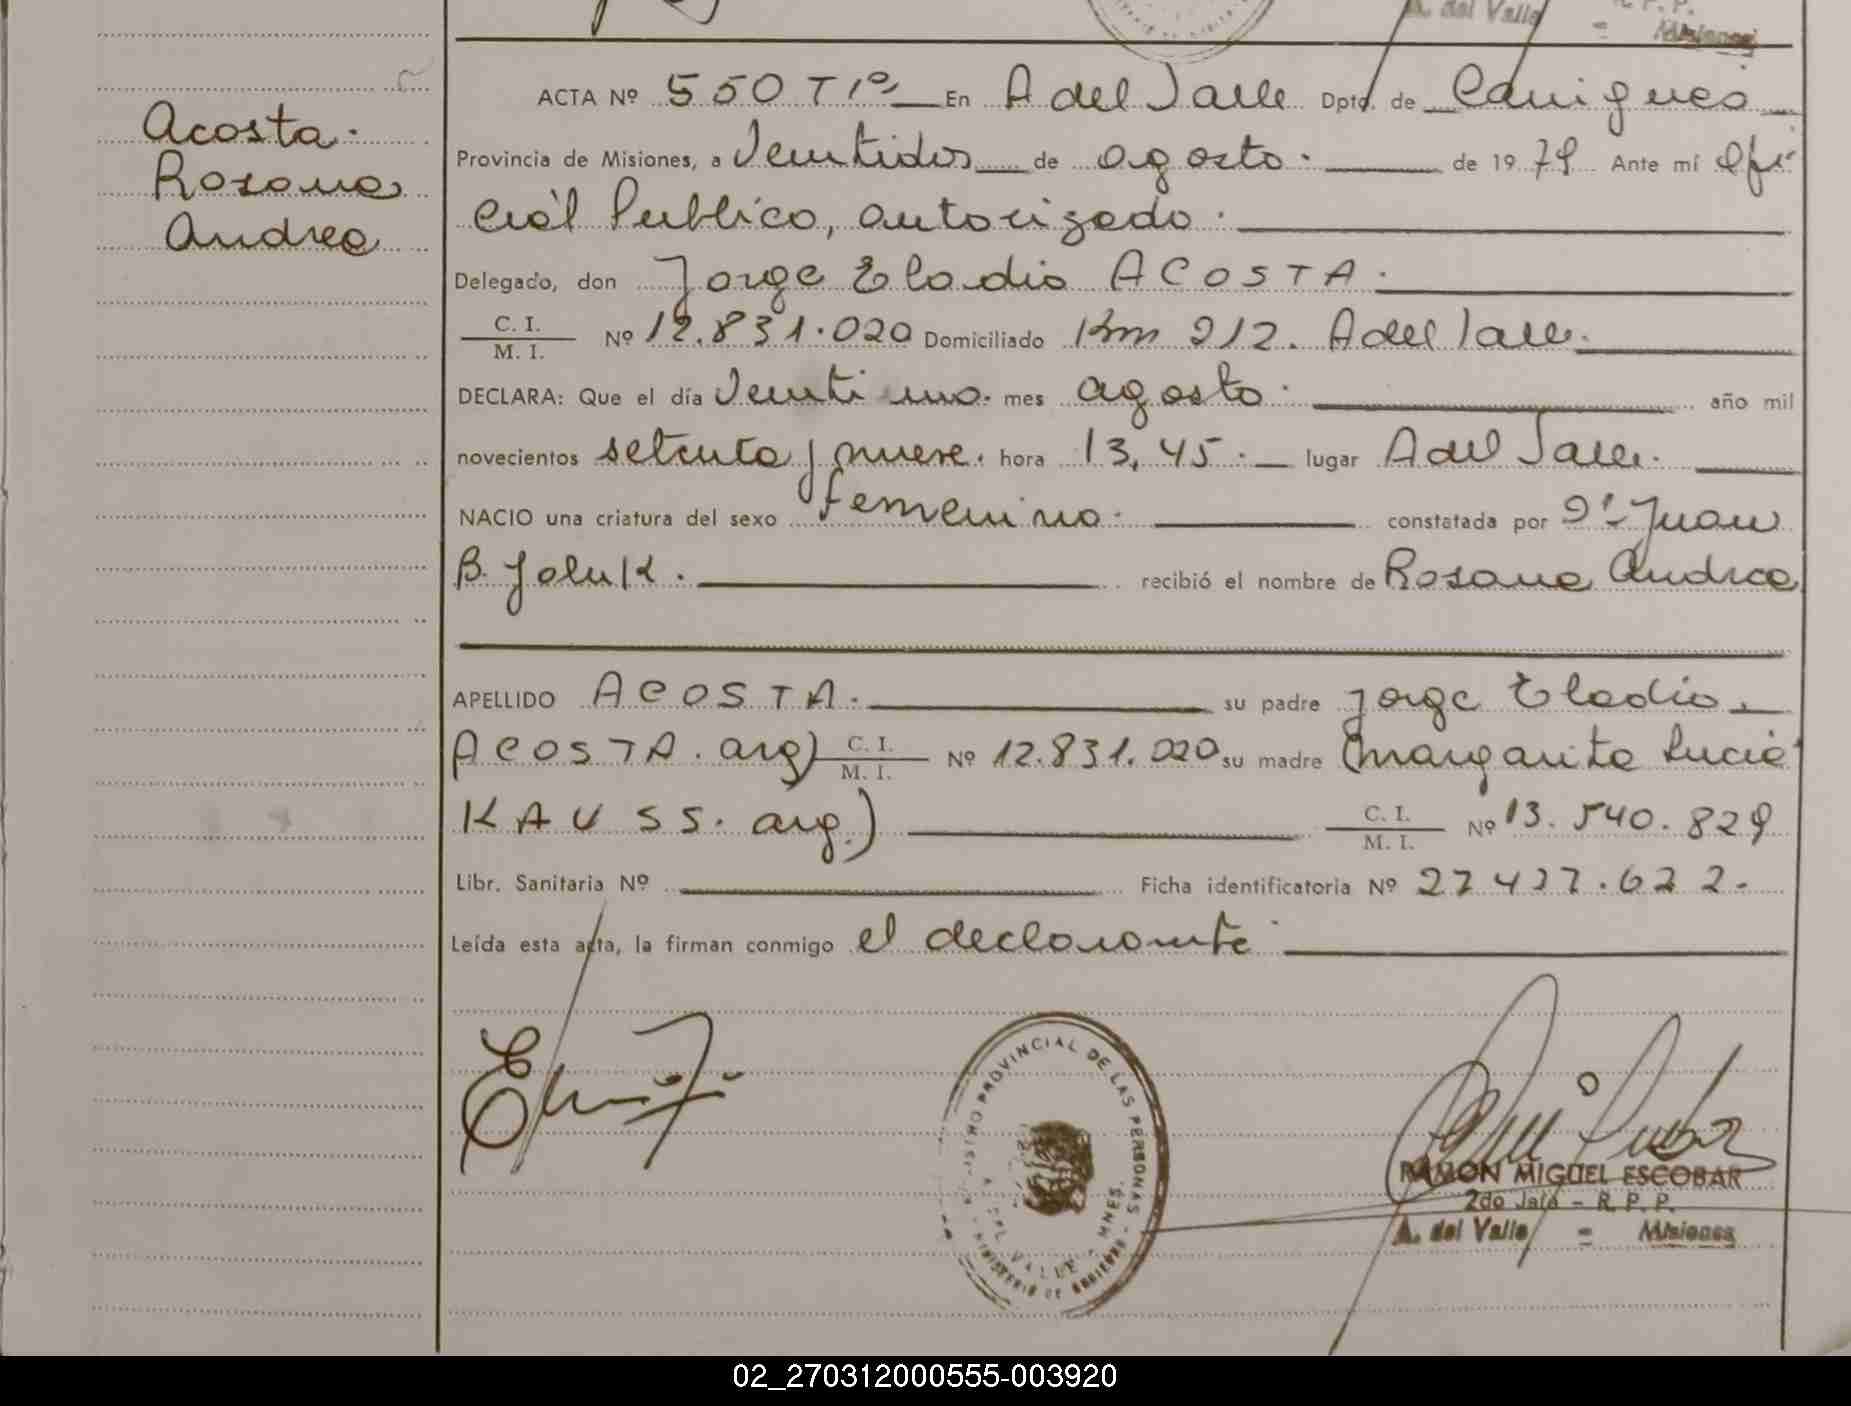 A. del Valle R. P. P.
= Misiones
Acosta.
Rosana
Andrea
ACTA Nº 550 T 1º En A del Valle Dpto. de Cainguás
Provincia de Misiones, a Veintidos de agosto. de 1979 Ante mí Ofi
cial Publico, autorizado.
Delegado, don Jorge Eladio ACOSTA.
C. I.
M. I. Nº 12.831.020 Domiciliado Km 212. A del Valle.
DECLARA: Que el día Veinti uno. mes agosto. año mil
novecientos setenta y nueve. hora 13,45. lugar A del Valle.
NACIO una criatura del sexo femenino. constatada por Dr. Juan
B. recibió el nombre de Rosana Andrea
APELLIDO ACOSTA. su padre Jorge Eladio
ACOSTA. arg) C. I.
M. I. Nº 12.831.020 su madre (Margarita Lucia
KAUSS. arg.) C. I.
M. I. Nº 13.540.829
Libr. Sanitaria Nº Ficha identificatoria Nº 27.427.622.
Leída esta acta, la firman conmigo el declarante
REGISTRO PROVINCIAL DE LAS PERSONAS
A. DEL VALLE - MNES.
MINISTERIO DE GOBIERNO
RAMON MIGUEL ESCOBAR
2do Jefe - R. P. P.
A. del Valle = Misiones
02_270312000555-003920